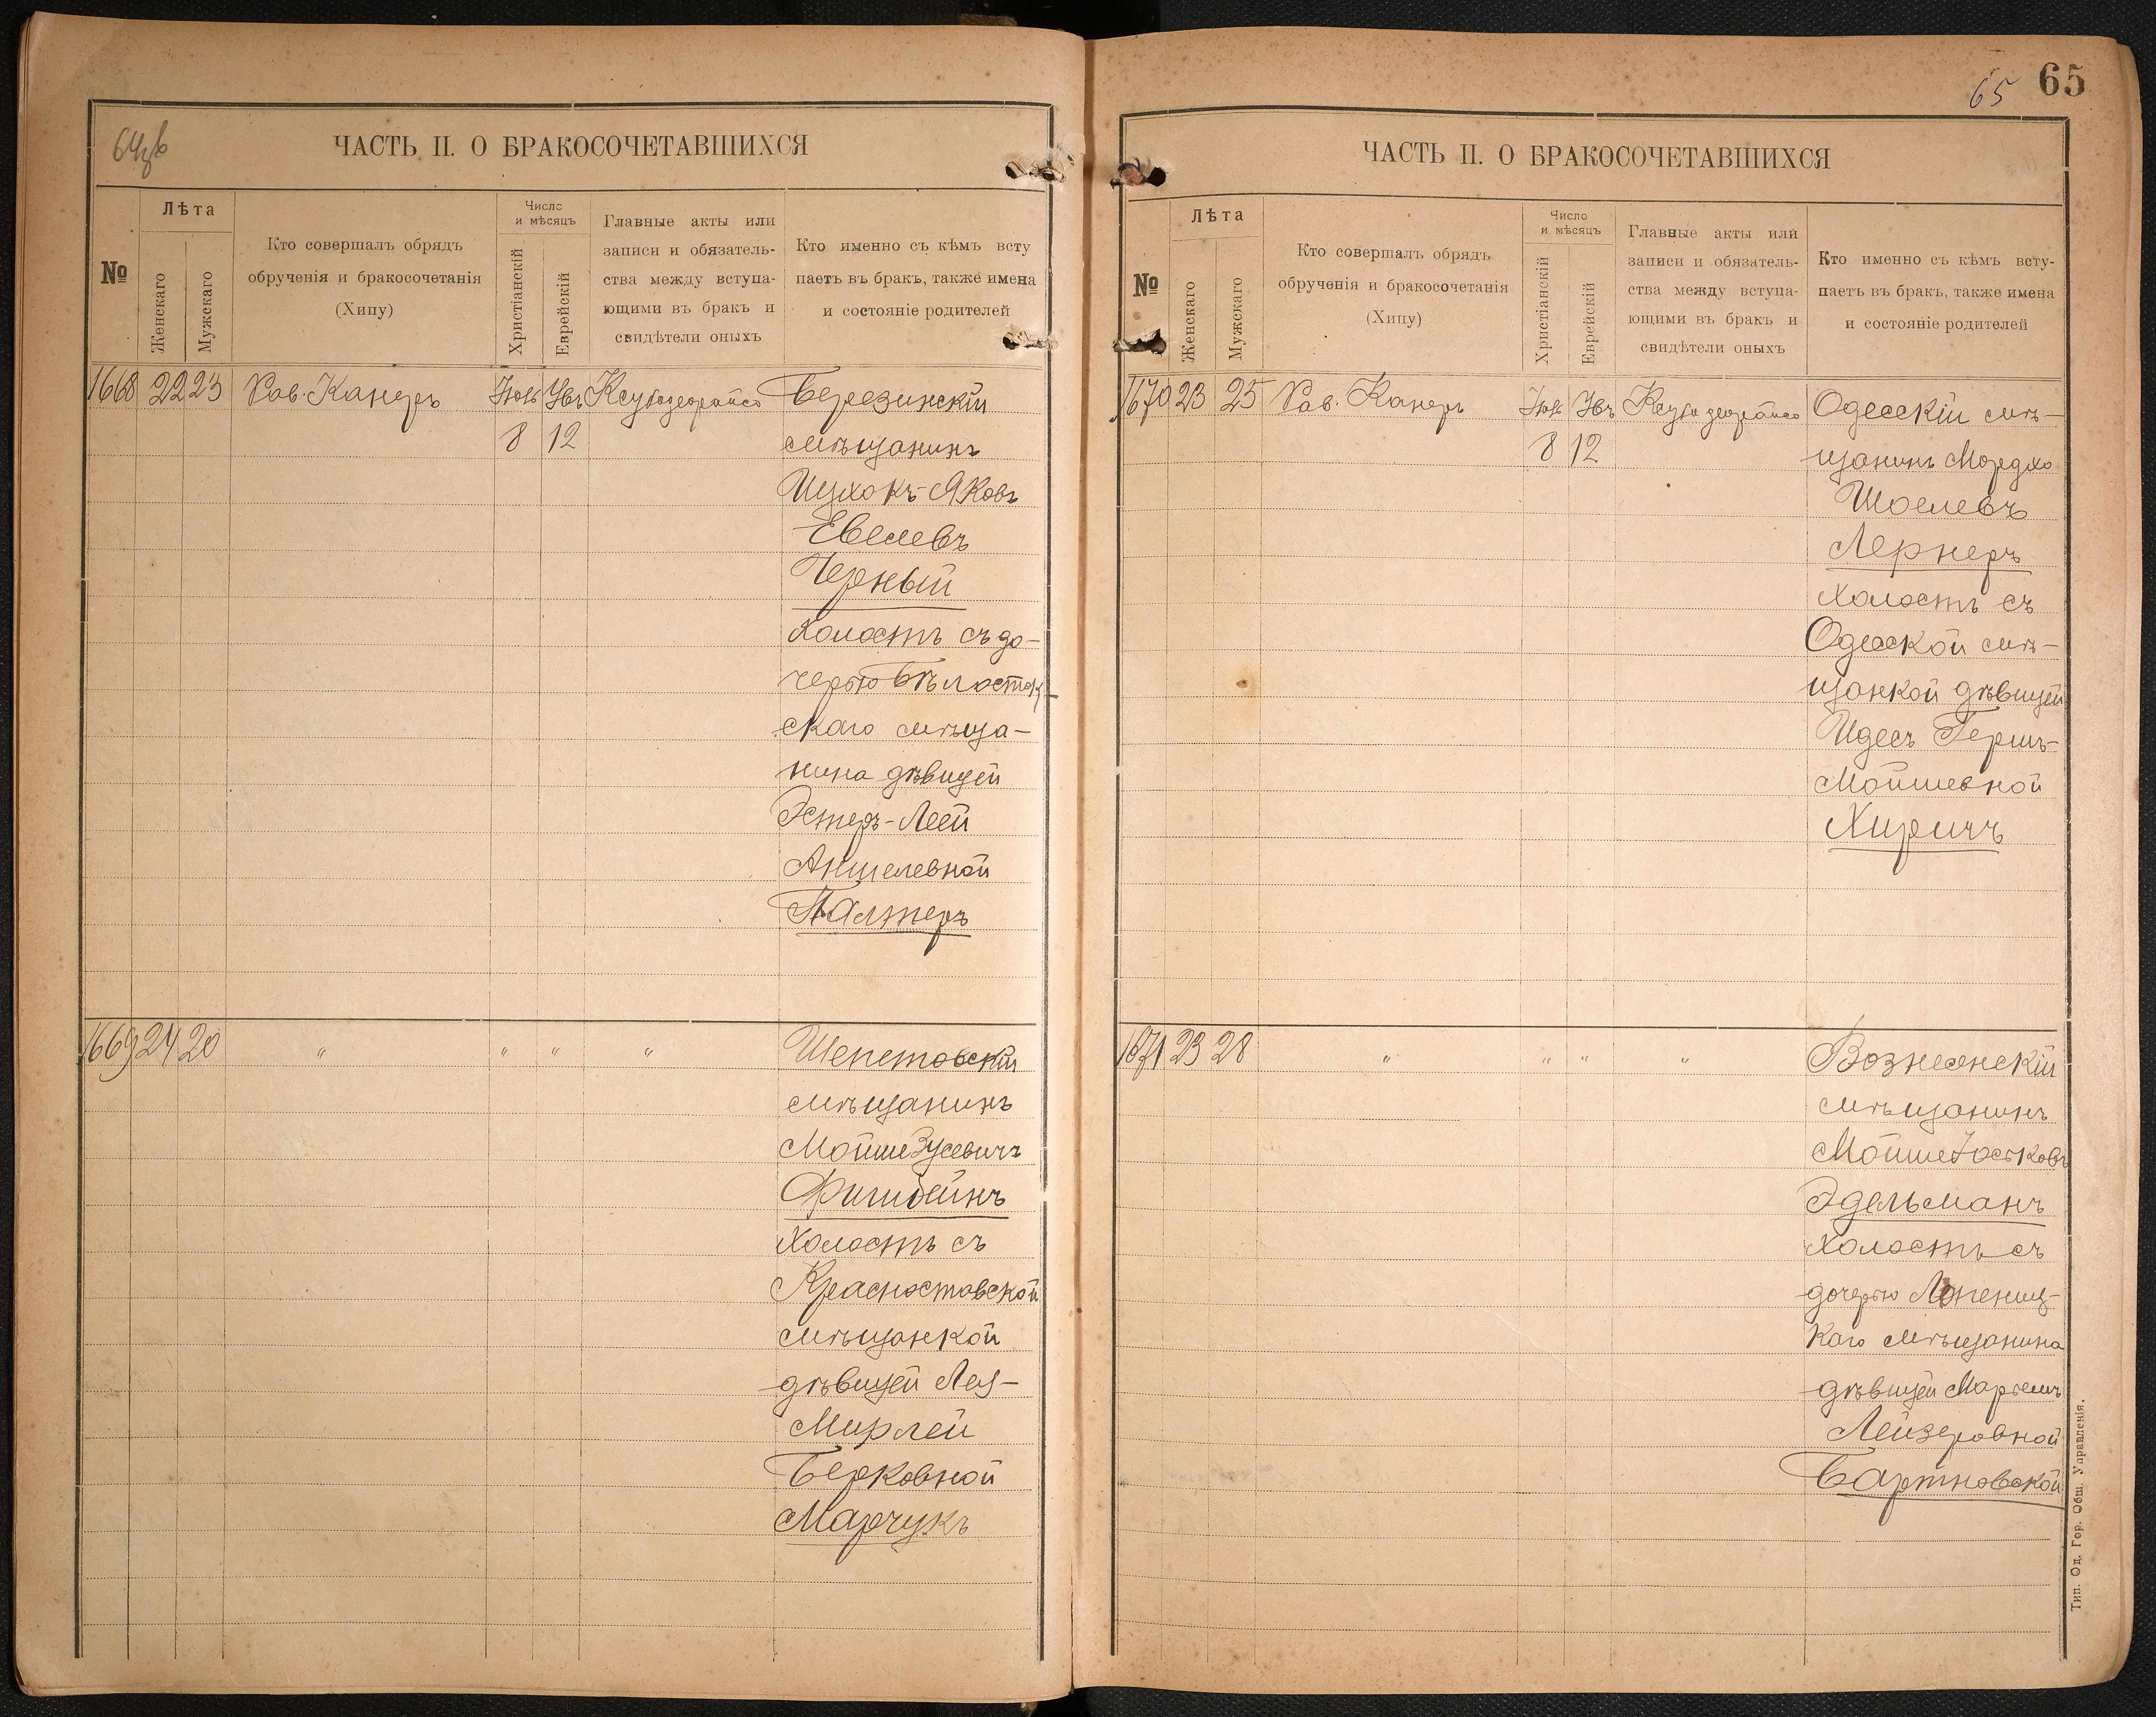 64об
ЧАСТЬ II. О БРАКОСОЧЕТАВШИХСЯ
№
Лѣта
Женскаго
Мужскаго
Кто совершалъ обрядъ
обрученія и бракосочетанія
(Хипу)
Число
и мѣсяцъ
Христіанскій
Еврейскій
Главные акты или
записи и обязатель-
ства между вступа-
ющими въ бракъ и
свидѣтели оныхъ
Кто именно съ кѣмъ всту
паетъ въ бракъ, также имена
и состояніе родителей
1668 22 23 Рав. Канеръ Березинскій
8 12 мѣщанинъ
Ицхокъ-Яковъ
Евелевъ
Черный
холостъ съ до-
черью Бѣлосток-
скаго мѣща-
нина дѣвицей
Эстеръ-Леей
Аншелевной
Палтеръ
1669 24 20 " " " " Шепетовскій
мѣщанинъ
Мойше Зусевичъ
Фишбейнъ
холостъ съ
Красноставской
мѣщанкой
дѣвицей Леѣ-
Мирлей
Берковной
Марчукъ
65 65
ЧАСТЬ II. О БРАКОСОЧЕТАВШИХСЯ
№
Лѣта
Женскаго
Мужскаго
Кто совершалъ обрядъ
обрученія и бракосочетанія
(Хипу)
Число
и мѣсяцъ
Христіанскій
Еврейскій
Главные акты или
записи и обязатель-
ства между вступа-
ющими въ бракъ и
свидѣтели оныхъ
Кто именно съ кѣмъ всту-
паетъ въ бракъ, также имена
и состояніе родителей
1670 23 25 Рав. Канеръ Одесскій мѣ-
8 12 щанинъ Мордко
Шоелевъ
Лернеръ
холостъ съ
Одесской мѣ-
щанкой дѣвицей
Идесъ Гершъ-
Мойшевной
Хиричъ
1671 23 28 " " " " Вознесенскій
мѣщанинъ
Мойше Іоськовъ
Эдельманъ
холостъ съ
дочерью
каго мѣщанина
дѣвицей
Лейзеровной
Бартновской
Тип. Од. Гор. Общ. Управленія.